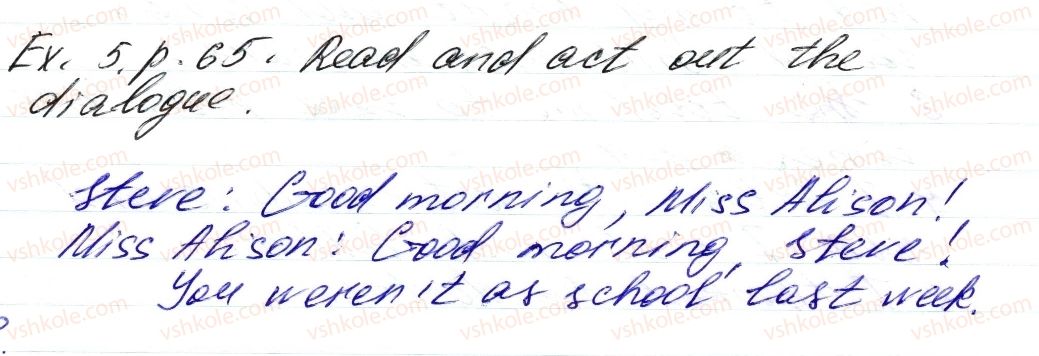 Ex. 5. p. 65. Read and act out the
dialogue.
Steve: Good morning, Miss Alison!
Miss Alison: Good morning, Steve!
You weren't as school last week.